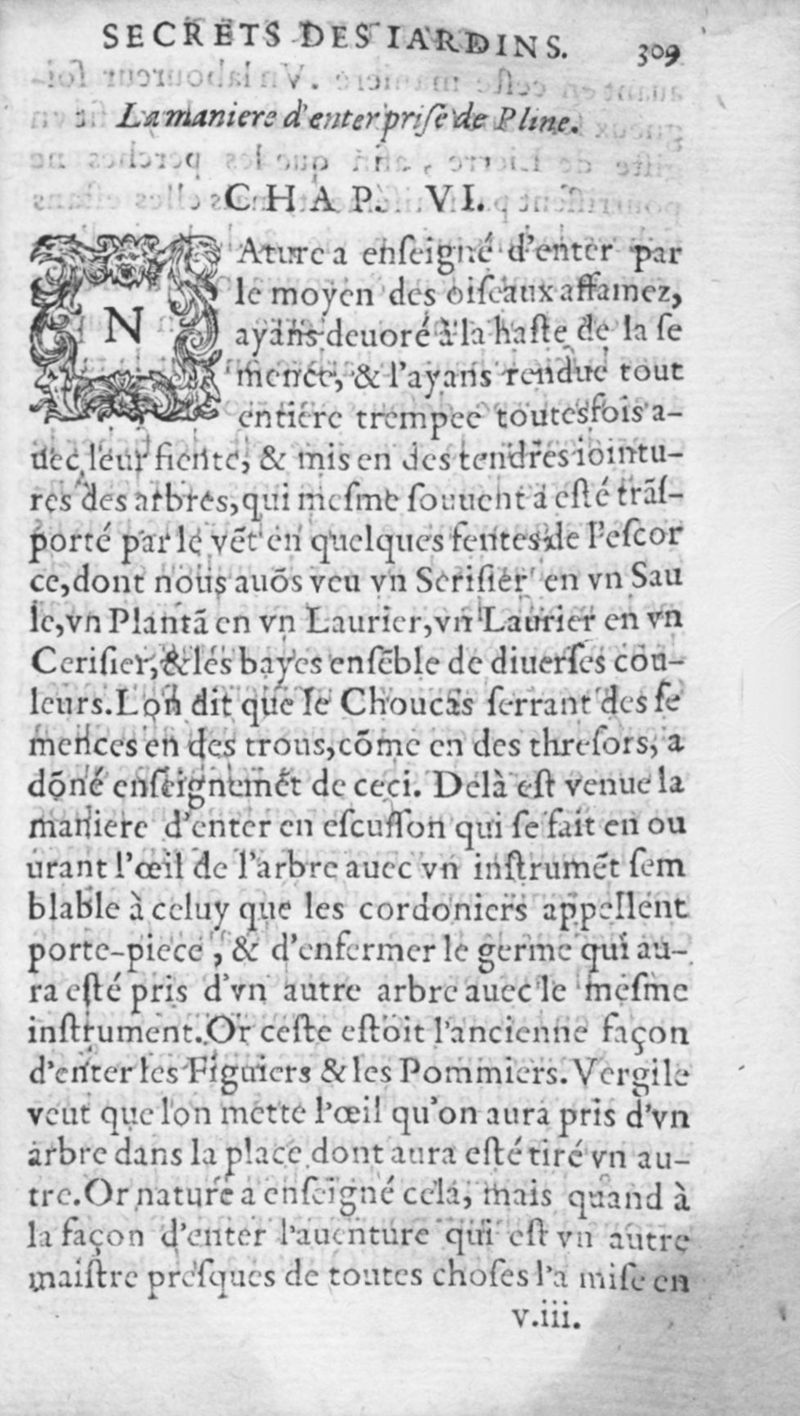 SECRETS DES IARDINS. 309
La maniere d'enter prise de Pline.
CHAP. VI.
NAture a enſeigné d'enter par
le moyen des oiſeaux affamez,
ayans deuoré à la haſte de la ſe
mence, & l'ayans rendue tout
entiere trempee toutesfois a-
uec leur fiente, & mis en des tendres iointu-
res des arbres, qui meſme ſouuent a eſté trãſ-
porté par le vẽt en quelques fentes de l'eſcor
ce, dont nous auõs veu vn Seriſier en vn Sau
le, vn Plantã en vn Laurier, vn Laurier en vn
Ceriſier, & les bayes enſẽble de diuerſes cou-
leurs. Lon dit que le Choucas ſerrant des ſe
mences en des trous, cõme en des threſors, a
dõné enſeignemẽt de ceci. Delà eſt venue la
maniere d'enter en eſcuſſon qui ſe fait en ou
urant l'œil de l'arbre auec vn inſtrumẽt ſem
blable à celuy que les cordoniers appellent
porte-piece, & d'enfermer le germe qui au-
ra eſté pris d'vn autre arbre auec le meſme
inſtrument. Or ceſte eſtoit l'ancienne façon
d'enter les Figuiers & les Pommiers. Vergile
veut que lon mette l'œil qu'on aura pris d'vn
arbre dans la place dont aura eſté tiré vn au-
tre. Or nature a enſeigné cela, mais quand à
la façon d'enter l'auenture qui eſt vn autre
maiſtre preſques de toutes choſes l'a miſe en
v.iii.